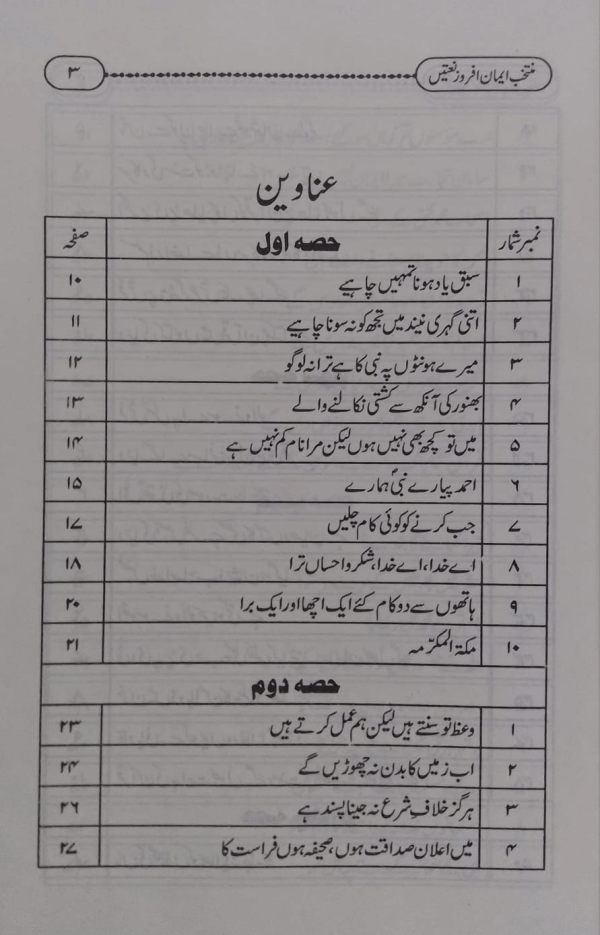 منتخب ایمان افروز نعتیں ۳
عناوین
نمبر شمار حصہ اول صفحہ
۱ سبق یاد ہونا تمہیں چاہیے ۱۰
۲ اتنی گہری نیند میں تجھ کو نہ سونا چاہیے ۱۱
۳ میرے ہونٹوں پہ نبی کا ہے ترانہ لوگو ۱۲
۴ بھنور کی آنکھ سے کشتی نکالنے والے ۱۳
۵ میں تو کچھ بھی نہیں ہوں لیکن مرا نام کم نہیں ہے ۱۴
۶ احمد پیارے نبیؐ ہمارے ۱۵
۷ جب کرنے کو کوئی کام چلیں ۱۷
۸ اے خدا، اے خدا، شکر و احساں ترا ۱۸
۹ ہاتھوں سے دو کام کئے ایک اچھا اور ایک برا ۲۰
۱۰ مکۃ المکرّمہ ۲۱
حصہ دوم
۱ وعظ تو سنتے ہیں لیکن ہم عمل کرتے ہیں ۲۳
۲ اب زمیں کا بدن نہ چھوڑیں گے ۲۴
۳ ہرگز خلافِ شرع نہ جینا پسند ہے ۲۶
۴ میں اعلان صداقت ہوں، صحیفہ ہوں فراست کا ۲۷